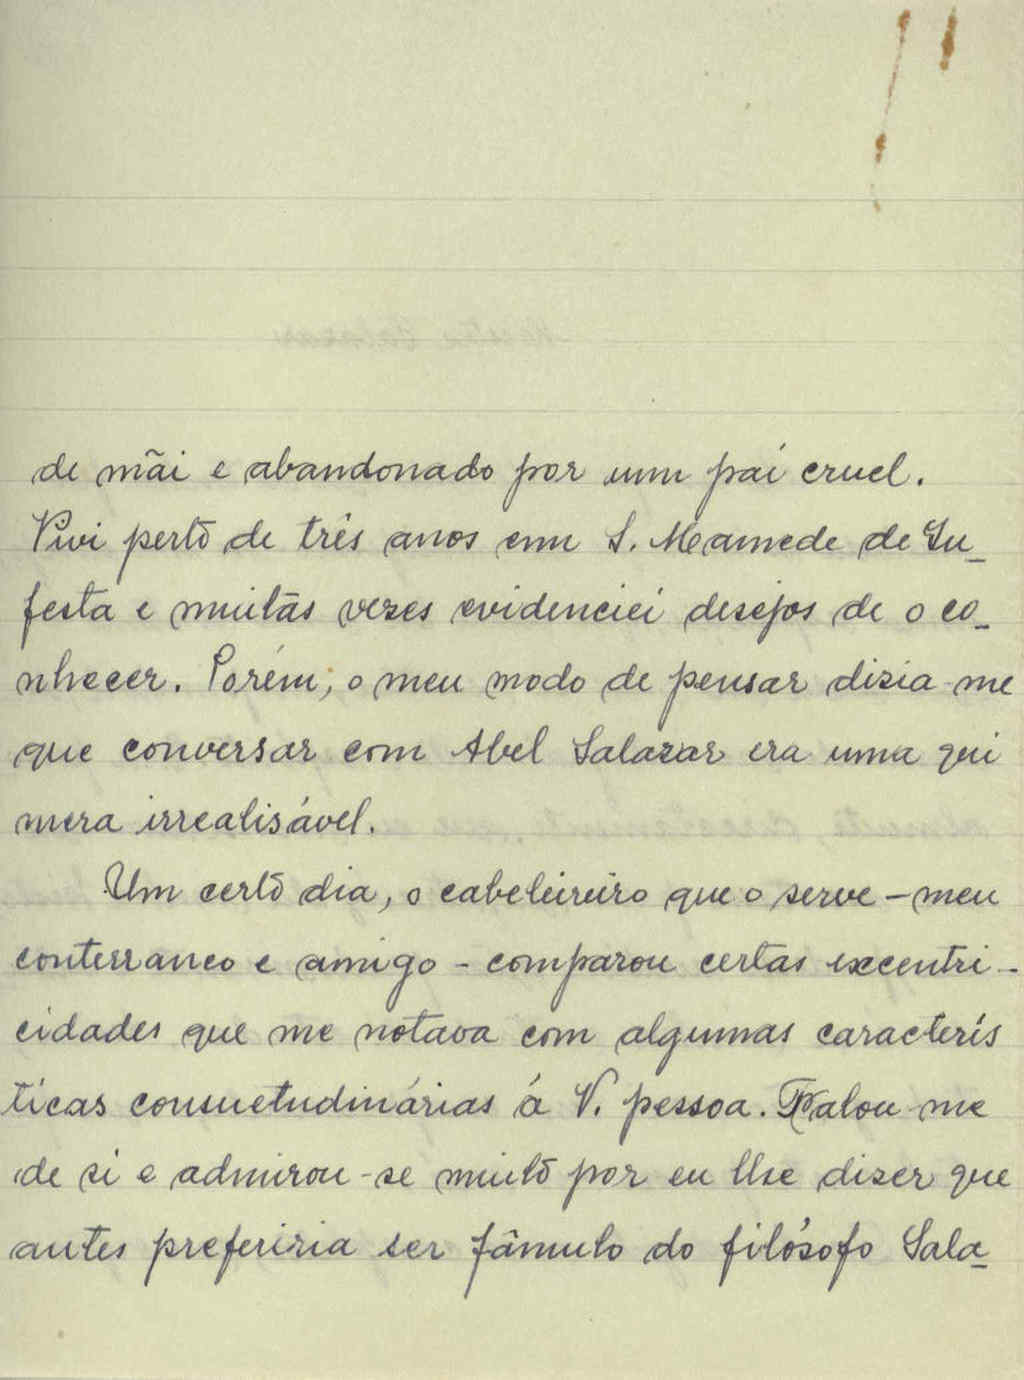 de mãi e abandonado por um pai cruel.
Vivi perto de três anos em S. Mamede de In_
festa e muitas vezes evidenciei desejos de o co_
nhecer. Porém, o meu modo de pensar disia-me
que conversar com Abel Salazar era uma qui
mera irrealisável.
Um certo dia, o cabeleireiro que o serve – meu
conterraneo e amigo – comparou certas excentri-
cidades que me notava com algumas caracterís
ticas consuetudinárias á V. pessoa. Falou-me
de si e admirou-se muito por eu lhe diser que
antes preferiria ser fâmulo do filósofo Sala_